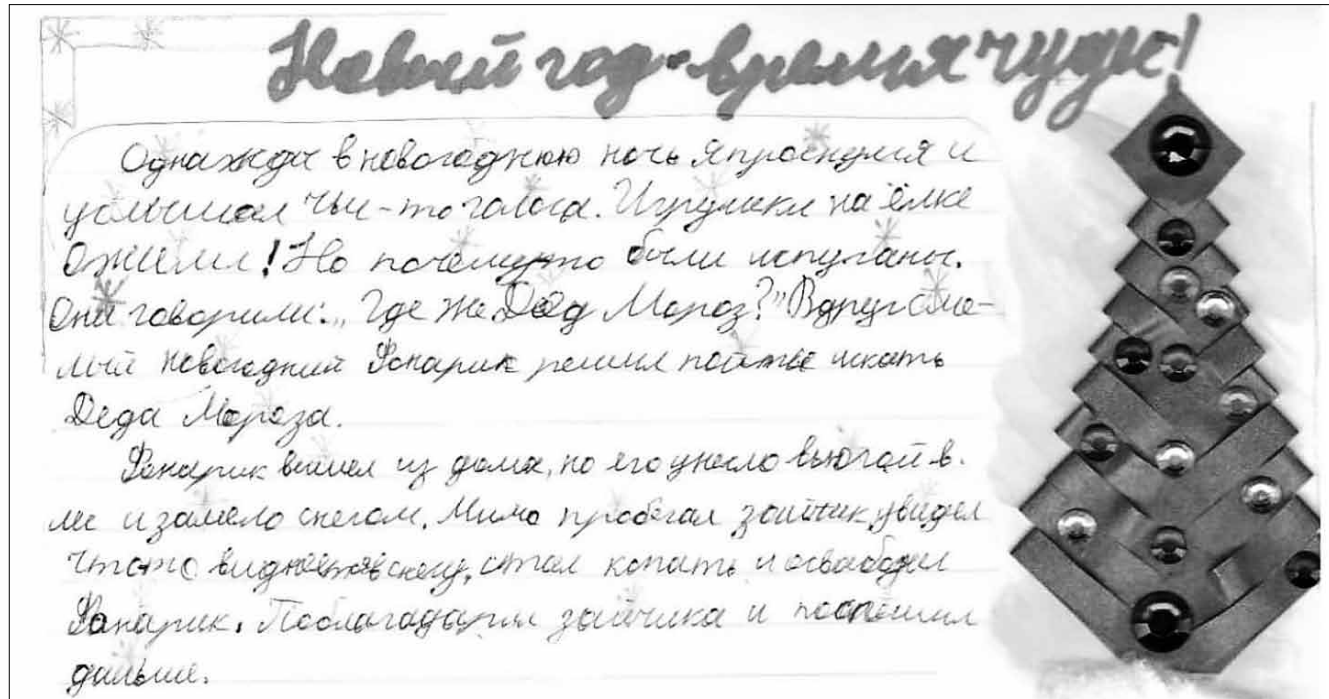 Новый год - время чудес!
Однажды в новогоднюю ночь я проснулся и
услышал чьи-то голоса. Игрушки на ёлке
ожили! Но почему-то были испуганы.
Они говорили: „Где же Дед Мороз?" Вдруг сме-
лый новогодний Фонарик решил пойти искать
Деда Мороза.
Фонарик вышел из дома, но его унесло вьюгой в
лес и замело снегом. Мимо пробегал зайчик увидел
что-то в снегу, стал копать и освободил
Фонарик. Поблагодарил зайчика и поспешил
дальше.